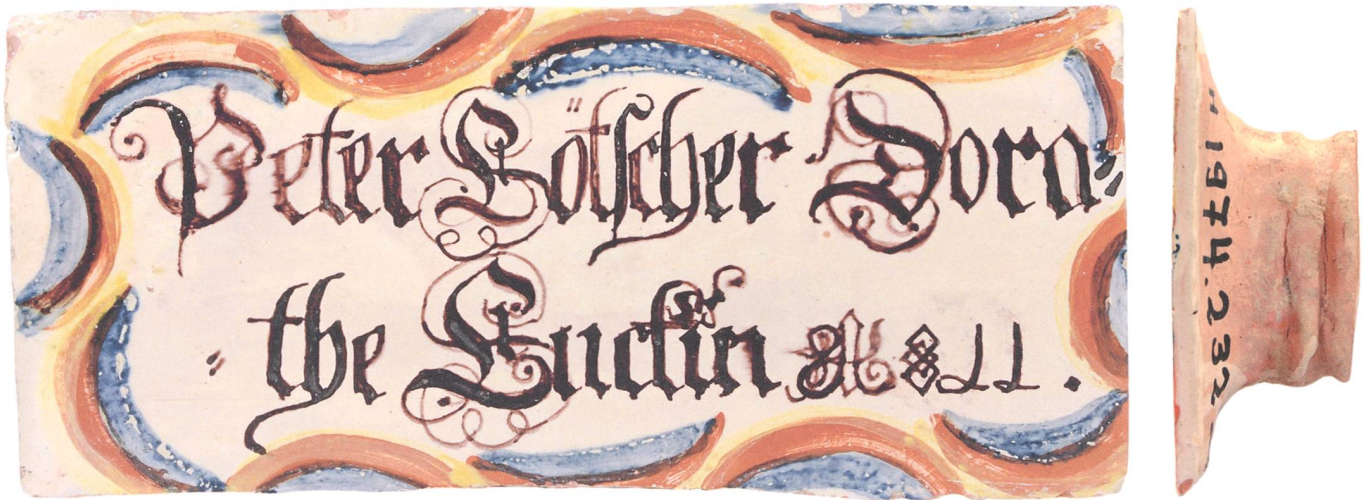 Peter Lötscher Dora=
=the Luckin A 811.
1974.232